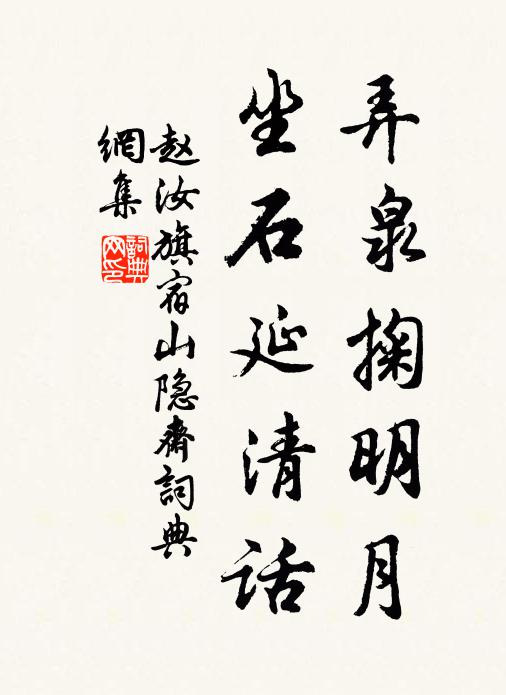 弄泉掬明月
坐石延清话
赵汝旗宿山隐斋詞典
網集
詞典网印